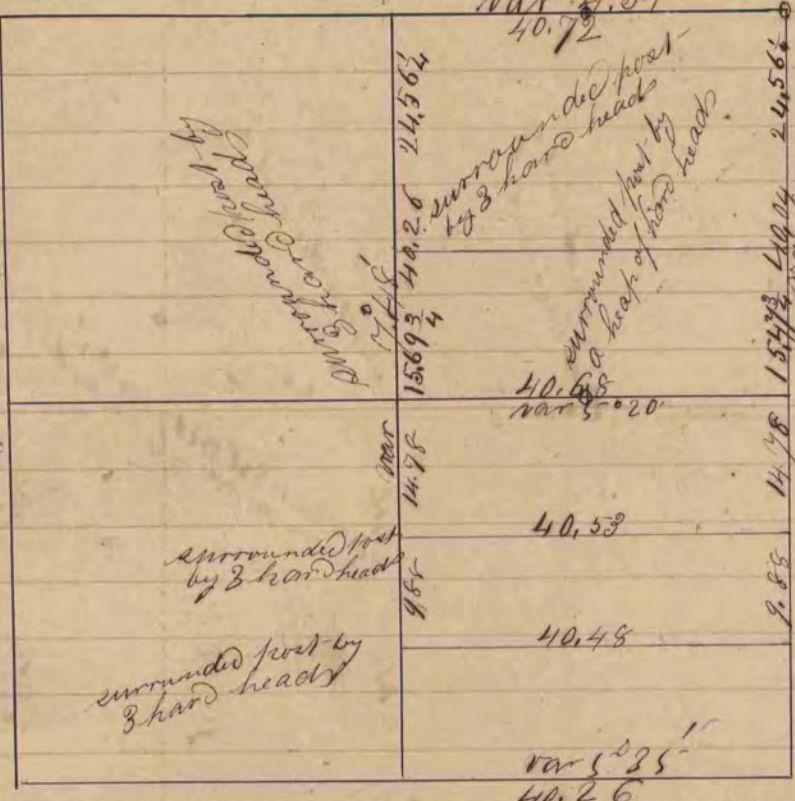 40.72
24,56¼
24,56¼
surrounded post
by 3 hard heads
surrounded post by
3 hard heads
surrounded post by
a heap of hard heads
40.26
40.04
7° 45'
15.69¾
15.47¾
40.68
var 5° 20
var
14.78
14.78
40,53
surrounded post
by 3 hard heads
9.88
9.88
40.48
surrounded post by
3 hard heads
var 5° 35'
40.26